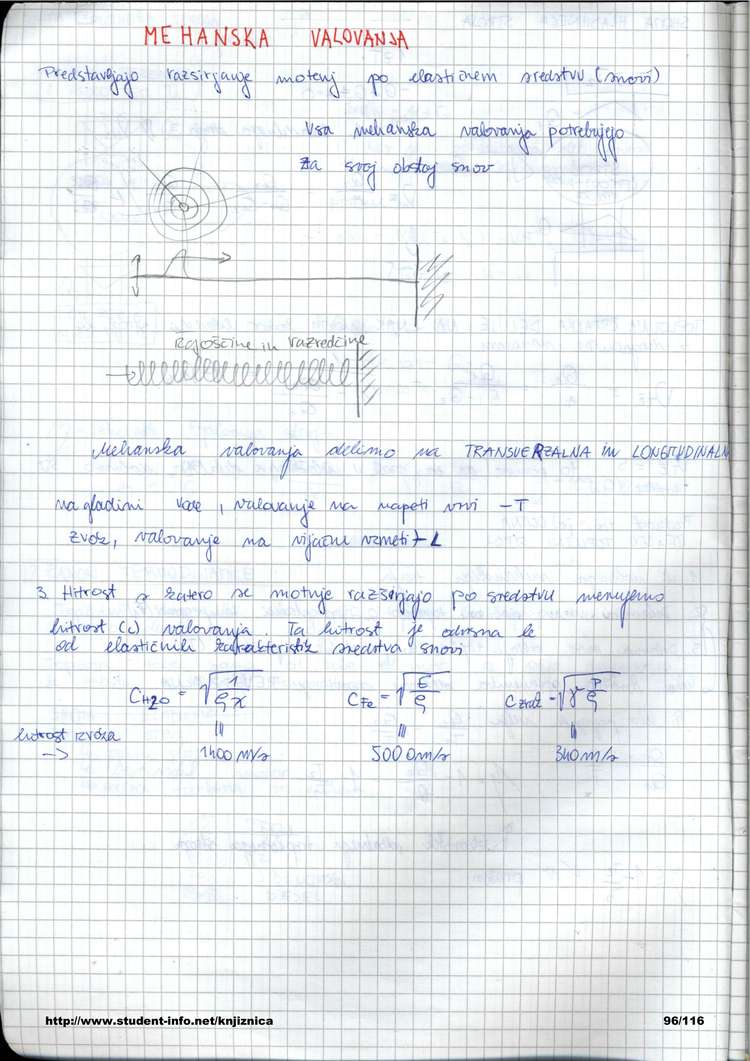 MEHANSKA VALOVANJA
Predstavljajo razsirjanje motenj po elastičnem sredstvu (snovi)
Vsa mehanska valovanja potrebujejo
za svoj obstoj snov
Zgoščine in razredčine
Mehanska valovanja delimo na TRANSVERZALNA in LONGITUDINALN
na gladini vode, valovanje na napeti vrvi - T
zvok, valovanje na vijačni vzmeti - L
3. Hitrost s katero se motnje razširjajo po sredstvu menujemo
hitrost (c) valovanja Ta hitrost je odvisna le
od elastičnih karakteristik sredstva snovi
C H2O = √1/ρχ C Fe = √E/ρ C zrak = √γ P/ρ
hitrost zvoka
→ 1400 m/s 5000 m/s 340 m/s
http://www.student-info.net/knjiznica 96/116